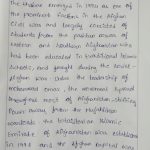 The Taliban emerged in 1994 as one of
the prominent factions in the Afghan
Civil war and largely consisted of
students from the pashtun areas of
eastern and southern Afghanistan who
had been educated in traditional Islamic
schools, and fought during the Soviet-
Afghan war. Under the leadership of
mohammed omar, the movement spread
throughout most of Afghanistan, shifting
Power away from the Mujahideen
warlords. the totalitarian Islamic
Emirate of Afghanistan was established
in 1996 and the Afghan capital was